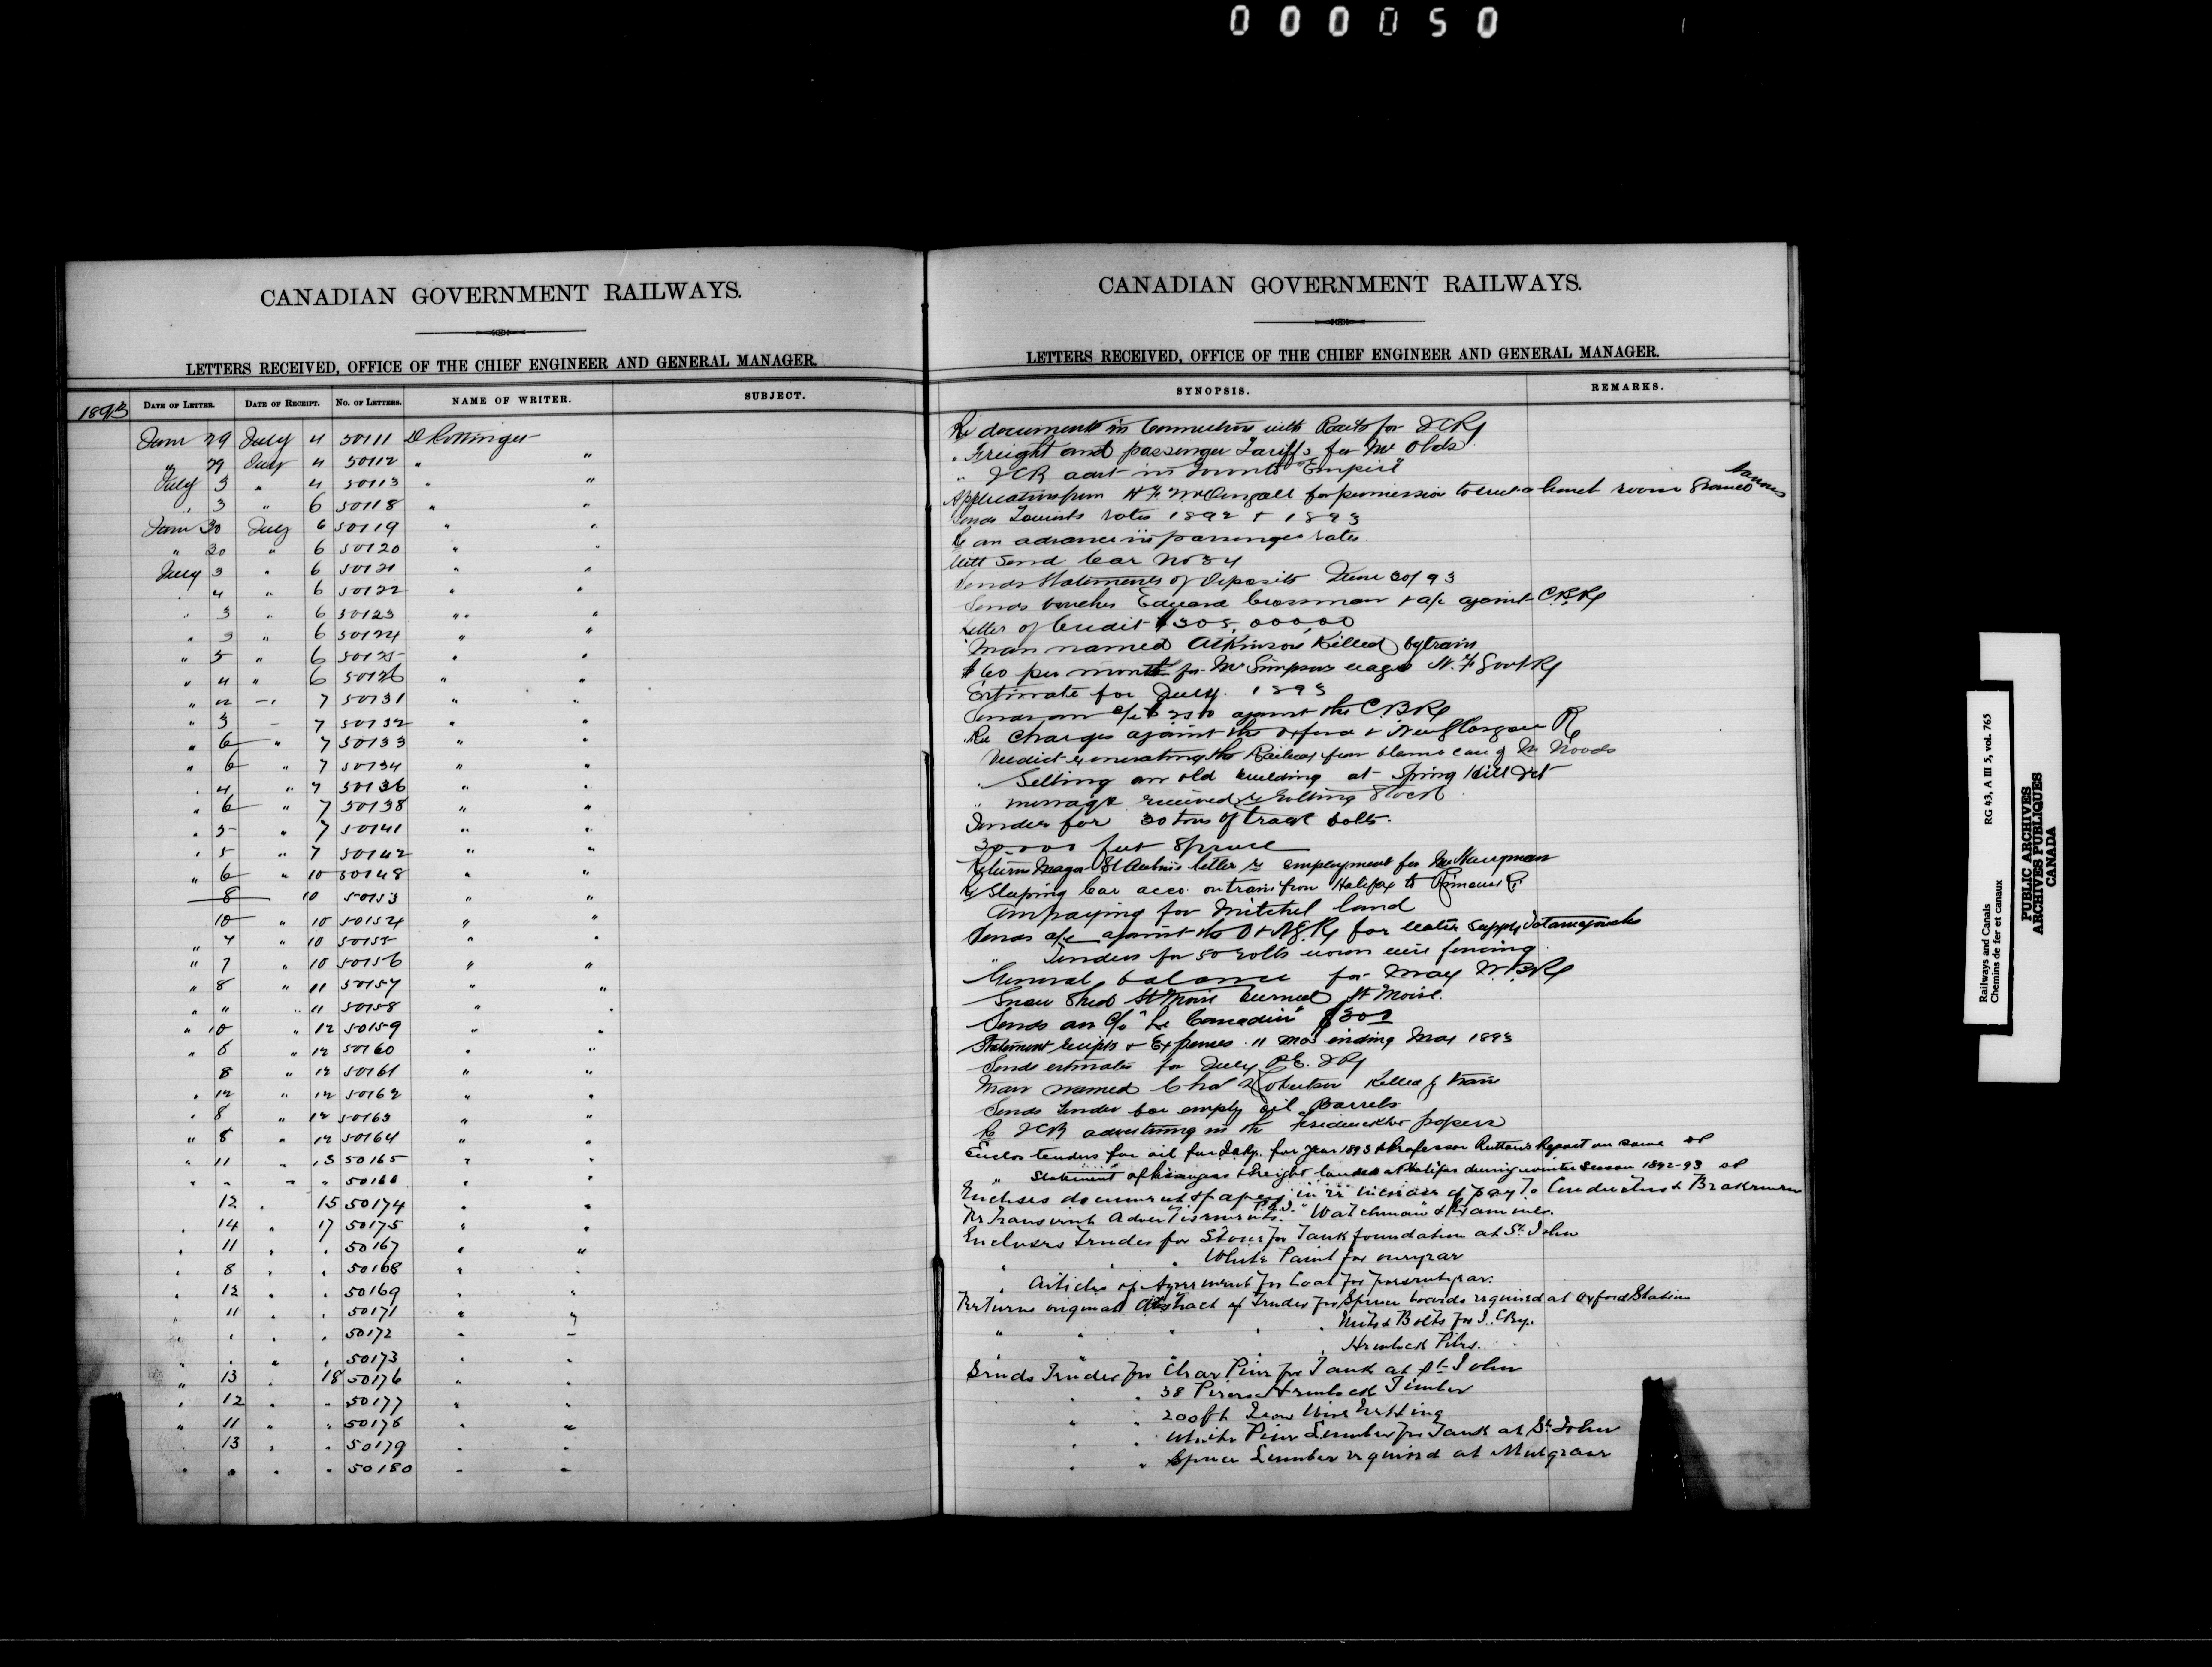 000050
CANADIAN GOVERNMENT RAILWAYS.
LETTERS RECEIVED, OFFICE OF THE CHIEF ENGINEER AND GENERAL MANAGER.
1893 DATE OF LETTER. DATE OF RECEIPT. NO. OF LETTERS. NAME OF WRITER. SUBJECT.
June 29 July 4 50111 D Pottinger
" 29 July 4 50112 " "
July 3 " 4 50113 " "
" 3 " 6 50118 " "
June 30 July 6 50119 " "
" 30 " 6 50120 " "
July 3 " 6 50121 " "
" 4 " 6 50122 " "
" 3 " 6 50123 " "
" 3 " 6 50124 " "
" 5 " 6 50125 " "
" 4 " 6 50126 " "
" " 7 50131 " "
" 3 " 7 50132 " "
" 6 " 7 50133 " "
" 6 " 7 50134 " "
" 4 " 7 50136 " "
" 6 " 7 50138 " "
" 5 " 7 50141 " "
" 5 " 7 50142 " "
" 6 " 10 50148 " "
8 10 50153 " "
10 " 10 50154 " "
" 7 " 10 50155 " "
" 7 " 10 50156 " "
" 8 " 11 50157 " "
" " " 11 50158 " "
" 10 " 12 50159 " "
" 8 " 12 50160 " "
8 " 12 50161 " "
" 12 " 12 50162 " "
" 8 " 12 50163 " "
" 8 " 12 50164 " "
" 11 " 13 50165 " "
" " " " 50166 " "
12 " 15 50174 " "
" 14 " 17 50175 " "
" 11 " " 50167 " "
" 8 " " 50168 " "
" 12 " " 50169 " "
" 11 " " 50171 " "
" " " " 50172 " "
" " " " 50173 " "
" 13 " 18 50176 " "
" 12 " " 50177 " "
" 11 " " 50178 " "
13 " " 50179 " "
" " " " 50180 " "
CANADIAN GOVERNMENT RAILWAYS.
LETTERS RECEIVED, OFFICE OF THE CHIEF ENGINEER AND GENERAL MANAGER.
SYNOPSIS. REMARKS.
Re documents in connection with Rails for ICRy
" Freight and passenger Tariffs for Mr Olds
" ICR advt in Toronto "Empire"
Application from H F McDougall for permission to erect a lunch room Grand Narrows
Sends Tourists rates 1892 & 1893
Re an advance in passenger rates
Will send Car No 34
Sends Statements of Deposits June 30/93
Sends voucher Edward Crossman & a/c against C.B.Ry
Letter of Credit $305,000.00
Man named Atkinson Killed by train
$60 per month for Mr Simpsons wages N.F. Govt Ry
Estimate for July 1893
Sends an a/c against the C.B.Ry
Re Charges against the Oxford & New Glasgow R
Verdict exonerating the Railway from blame case of Mr Woods
" Selling an old building at Spring Hill Jct
" message received re Rolling Stock
Tender for 30 tons of track bolts
30,000 feet Spruce
Return Major letter re employment for
Re Sleeping Car acco. on train from Halifax to
Am paying for Mitchel land
Sends a/c against the O & N.G.Ry for water supply Tatamagouche
" Tenders for 50 rolls woven wire fencing
General balance for May
Snow Shed St Moise burned St Moise.
Sends an a/c "Le Canadien" $300
Statement receipts & Expenses 11 mos ending May 1893
Sends estimates for July P.E.I Ry
Man named Chas Robertson Killed by train
Sends tender for empty oil Barrels
Re ICR advertising in the papers
Enclos tenders for oil for I.C.Ry. for year 1893 & Professor Ruttan's Report on same
" Statement of passengers & freight landed at Halifax during winter Season 1892-93
Encloses document & papers in re increase of pay to Conductors & Brakemen
Re Transient Advertisements. P.E.I. "Watchman" & Examiner.
Encloses Tender for Stone for Tank foundation at St. John
" " " White Paint for one year
" Articles of Agreement for Coal for present year.
Returns original abstract of Tender for Spruce boards required at Oxford Station
" " " " " Nuts & Bolts for I.C.Ry.
" " " Hemlock Piles.
Sends Tender for Clear Pine for Tank at St John
" " 38 Pieces Hemlock Timber
" " 200 ft Iron Wire Netting
" " White Pine Lumber for Tank at St. John
" " Spruce Lumber required at Mulgrave
Railways and Canals RG 43, A III 5, vol. 765
Chemins de fer et canaux
PUBLIC ARCHIVES
ARCHIVES PUBLIQUES
CANADA